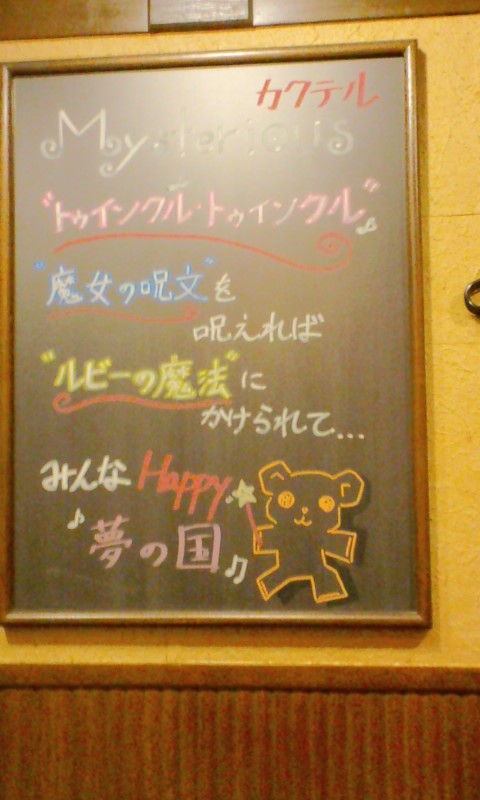 カクテル
Mysterious
"トゥインクル・トゥインクル"♪
"魔女の呪文"を
呪えれば
"ルビーの魔法"に
かけられて...
みんなHappy
♪夢の国♫